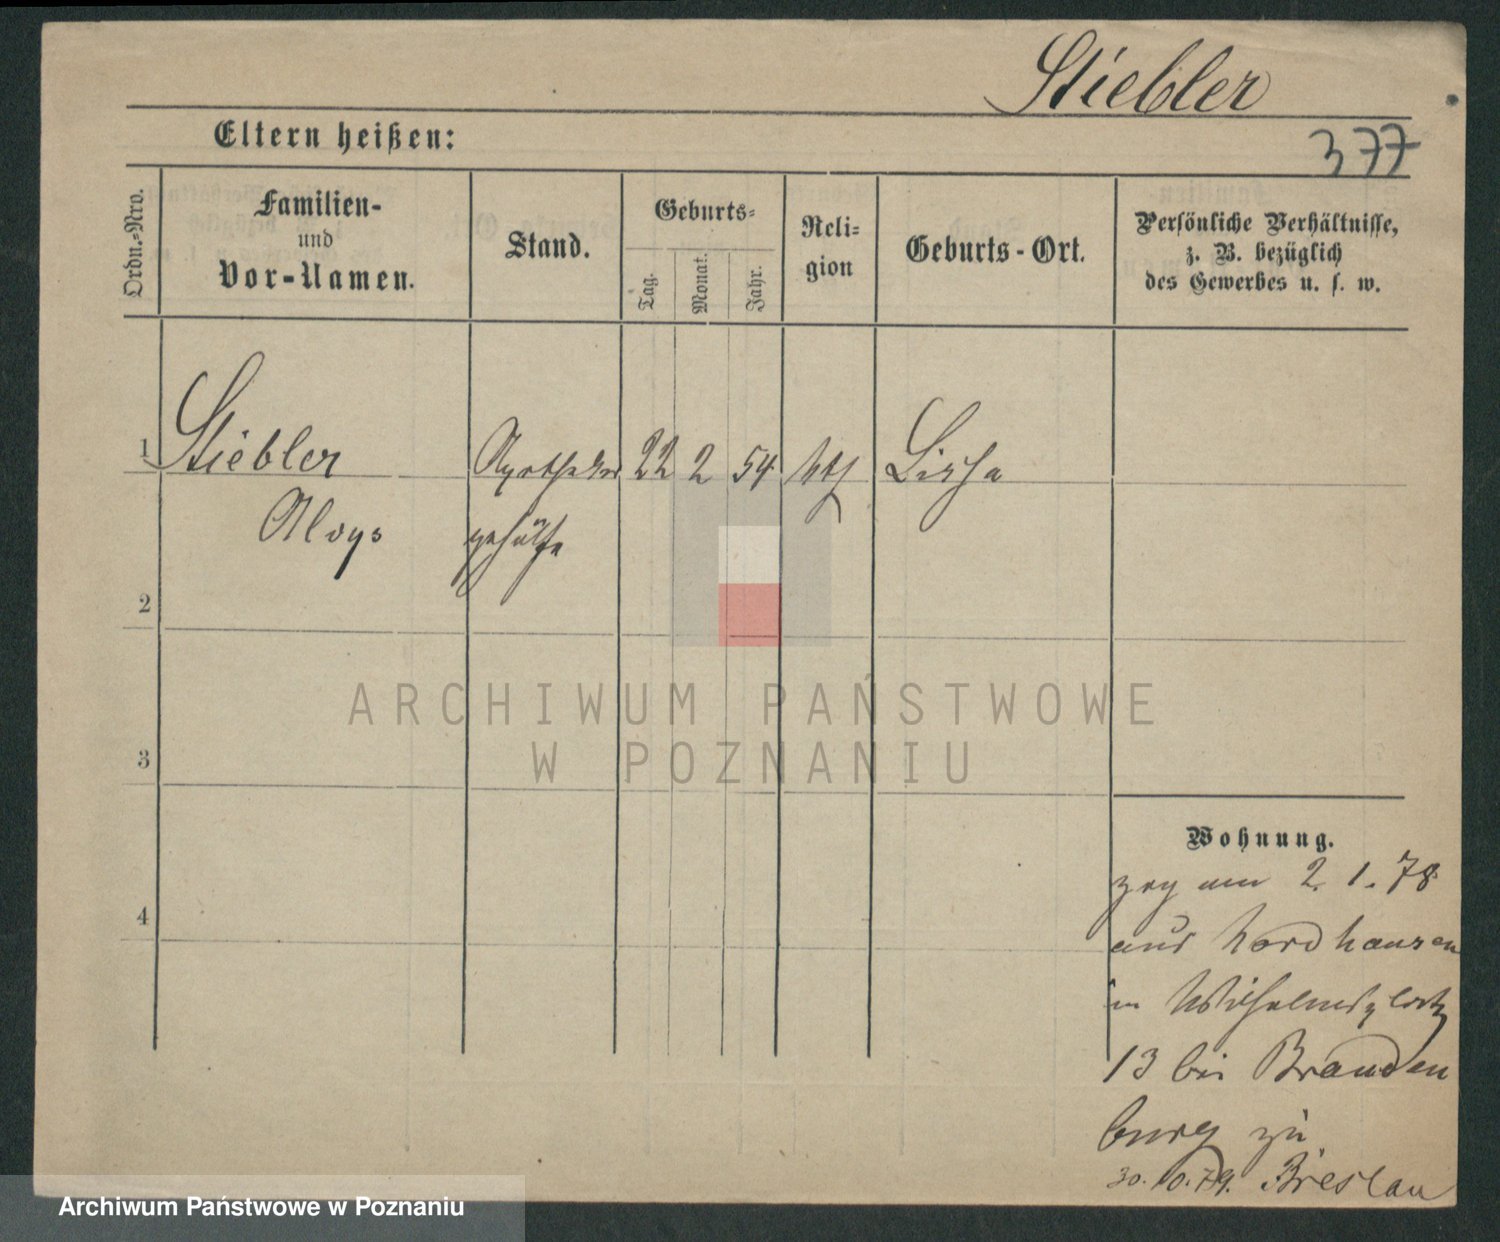 Stiebler
Eltern heißen:
377
Ordn.-Nro.
Familien-
und
Vor-Namen.
Stand.
Geburts-
Tag.
Monat.
Jahr.
Reli-
gion
Geburts-Ort.
Persönliche Verhältnisse,
z. B. bezüglich
des Gewerbes u. s. w.
1 Stiebler Apotheker 22 2 54 kth Lissa
Aloys gehülfe
2
3
4
ARCHIWUM PAŃSTWOWE
W POZNANIU
Wohnung.
zog am 2. 1. 78
aus Nordhausen
in Wilhelmsplatz
13 bei Branden
burg zu
30.10.79. Breslau
Archiwum Państwowe w Poznaniu